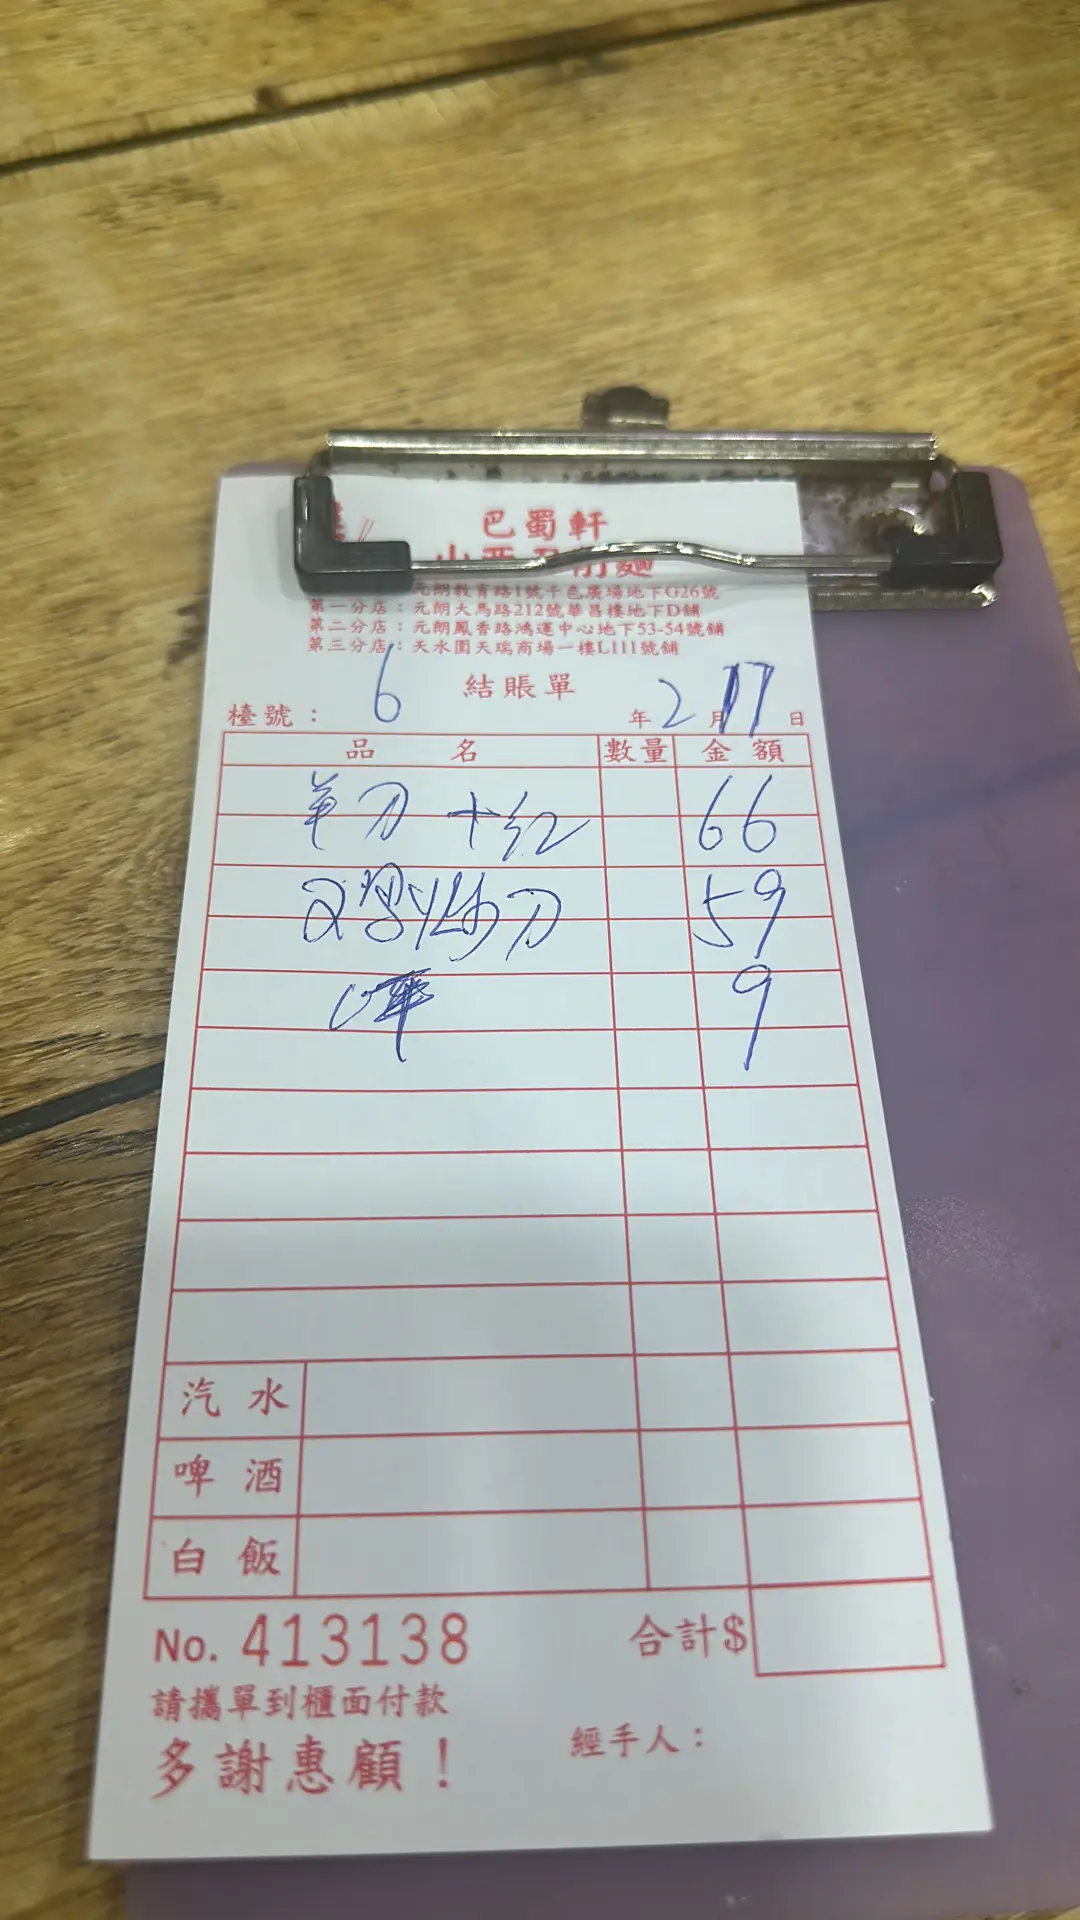 巴蜀軒
山西刀削麵
元朗教育路1號千色廣場地下G26號
第一分店：元朗大馬路212號華昌樓地下D舖
第二分店：元朗鳳香路鴻運中心地下53-54號舖
第三分店：天水圍天瑞商場一樓L111號舖
結賬單
檯號： 6 年 2 月 17 日
品 名 數量 金額
羊刀 十红 66
炒刀 59
9
汽水
啤酒
白飯
No. 413138 合計$
請攜單到櫃面付款
經手人：
多謝惠顧！